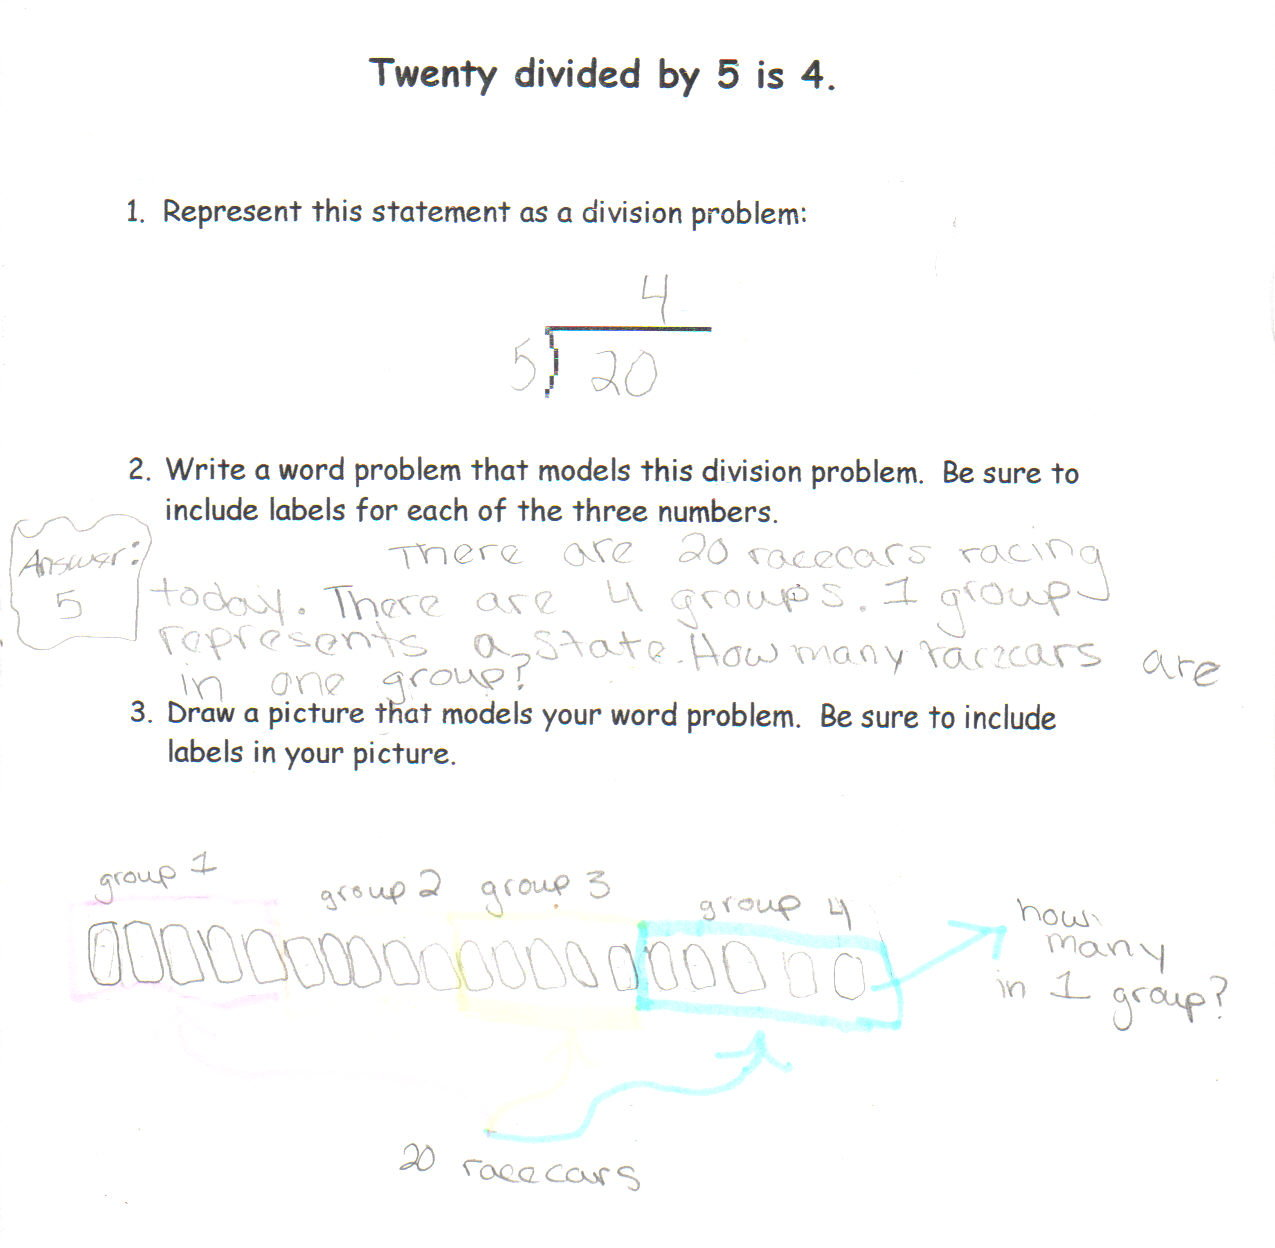 Twenty divided by 5 is 4.
1. Represent this statement as a division problem:
4
5 20
2. Write a word problem that models this division problem. Be sure to
include labels for each of the three numbers.
Answer:
5
There are 20 racecars racing
today. There are 4 groups. 1 group
represents a state. How many racecars are
in one group?
3. Draw a picture that models your word problem. Be sure to include
labels in your picture.
group 1
group 2
group 3
group 4
how
many
in 1 group?
20 racecars